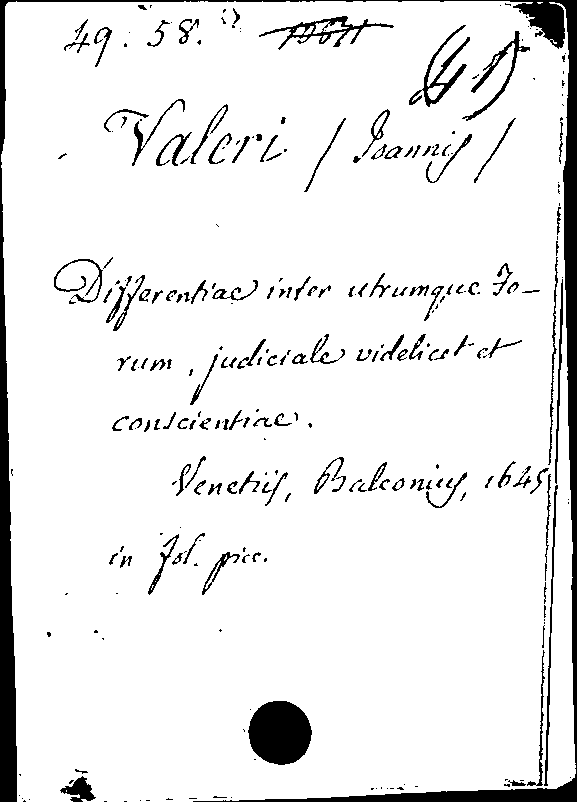 49. 58.
(41)
Valeri / Joannis /
Differentiae inter utrumque Fo-
rum, judiciale videlicet et
conscientiae.
Venetiis, Baleonius, 1645
in fol. picc.